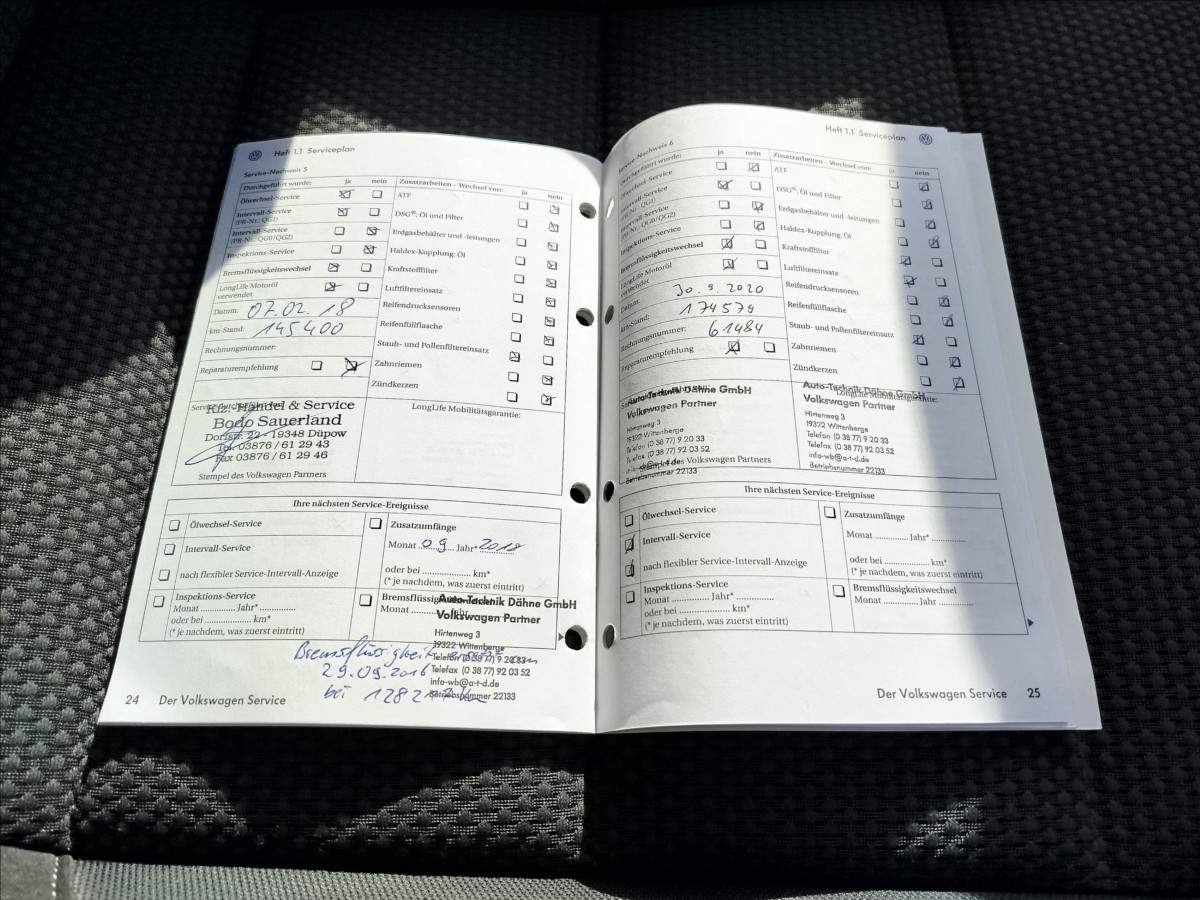 Heft 1.1 Serviceplan
Service-Nachweis 5
Durchgeführt wurde: ja nein
Ölwechsel-Service
Intervall-Service
(PR-Nr.: QG1)
Intervall-Service
(PR-Nr.: QG0/QG2)
Inspektions-Service
Bremsflüssigkeitswechsel
LongLife Motoröl
verwendet
Datum: 07.02.18
km-Stand: 145400
Rechnungsnummer:
Reparaturempfehlung
Zusatzarbeiten - Wechsel von: ja nein
ATF
DSG®: Öl und Filter
Erdgasbehälter und -leitungen
Haldex-Kupplung: Öl
Kraftstofffilter
Luftfiltereinsatz
Reifendrucksensoren
Reifenfüllflasche
Staub- und Pollenfiltereinsatz
Zahnriemen
Zündkerzen
Kfz.-Handel & Service
Bodo Sauerland
Dorfstr. 22 - 19348 Düpow
Tel. 03876 / 61 29 43
Fax 03876 / 61 29 46
Stempel des Volkswagen Partners
LongLife Mobilitätsgarantie:
Ihre nächsten Service-Ereignisse
Ölwechsel-Service
Intervall-Service
nach flexibler Service-Intervall-Anzeige
Inspektions-Service
Monat ............ Jahr* ............
oder bei ........................ km*
(* je nachdem, was zuerst eintritt)
Zusatzumfänge
Monat 09 Jahr* 2018
oder bei ........................ km*
(* je nachdem, was zuerst eintritt)
Monat
Auto-Technik Dähne GmbH
Volkswagen Partner
Hirtenweg 3
19322 Wittenberge
Telefon (0 38 77) 9 20 33
Telefax (0 38 77) 92 03 52
info-wb@a-t-d.de
Betriebsnummer 22133
29.09.2016
bei
24 Der Volkswagen Service
Heft 1.1 Serviceplan
Service-Nachweis 6
Durchgeführt wurde: ja nein
Ölwechsel-Service
Intervall-Service
(PR-Nr.: QG1)
Intervall-Service
(PR-Nr.: QG0/QG2)
Inspektions-Service
Bremsflüssigkeitswechsel
LongLife Motoröl
verwendet
Datum: 30.9.2020
km-Stand: 174579
Rechnungsnummer: 61484
Reparaturempfehlung
Zusatzarbeiten - Wechsel von: ja nein
ATF
DSG®: Öl und Filter
Erdgasbehälter und -leitungen
Haldex-Kupplung: Öl
Kraftstofffilter
Luftfiltereinsatz
Reifendrucksensoren
Reifenfüllflasche
Staub- und Pollenfiltereinsatz
Zahnriemen
Zündkerzen
Auto-Technik Dähne GmbH
Volkswagen Partner
Hirtenweg 3
19322 Wittenberge
Telefon (0 38 77) 9 20 33
Telefax (0 38 77) 92 03 52
Stempel des Volkswagen Partners
Betriebsnummer 22133
Auto-Technik Dähne GmbH
Volkswagen Partner
Hirtenweg 3
19322 Wittenberge
Telefon (0 38 77) 9 20 33
Telefax (0 38 77) 92 03 52
info-wb@a-t-d.de
Betriebsnummer 22133
Ihre nächsten Service-Ereignisse
Ölwechsel-Service
Intervall-Service
nach flexibler Service-Intervall-Anzeige
Inspektions-Service
Monat ............ Jahr* ............
oder bei ........................ km*
(* je nachdem, was zuerst eintritt)
Zusatzumfänge
Monat ............ Jahr* ............
oder bei ........................ km*
(* je nachdem, was zuerst eintritt)
Bremsflüssigkeitswechsel
Monat ............ Jahr ............
Der Volkswagen Service 25